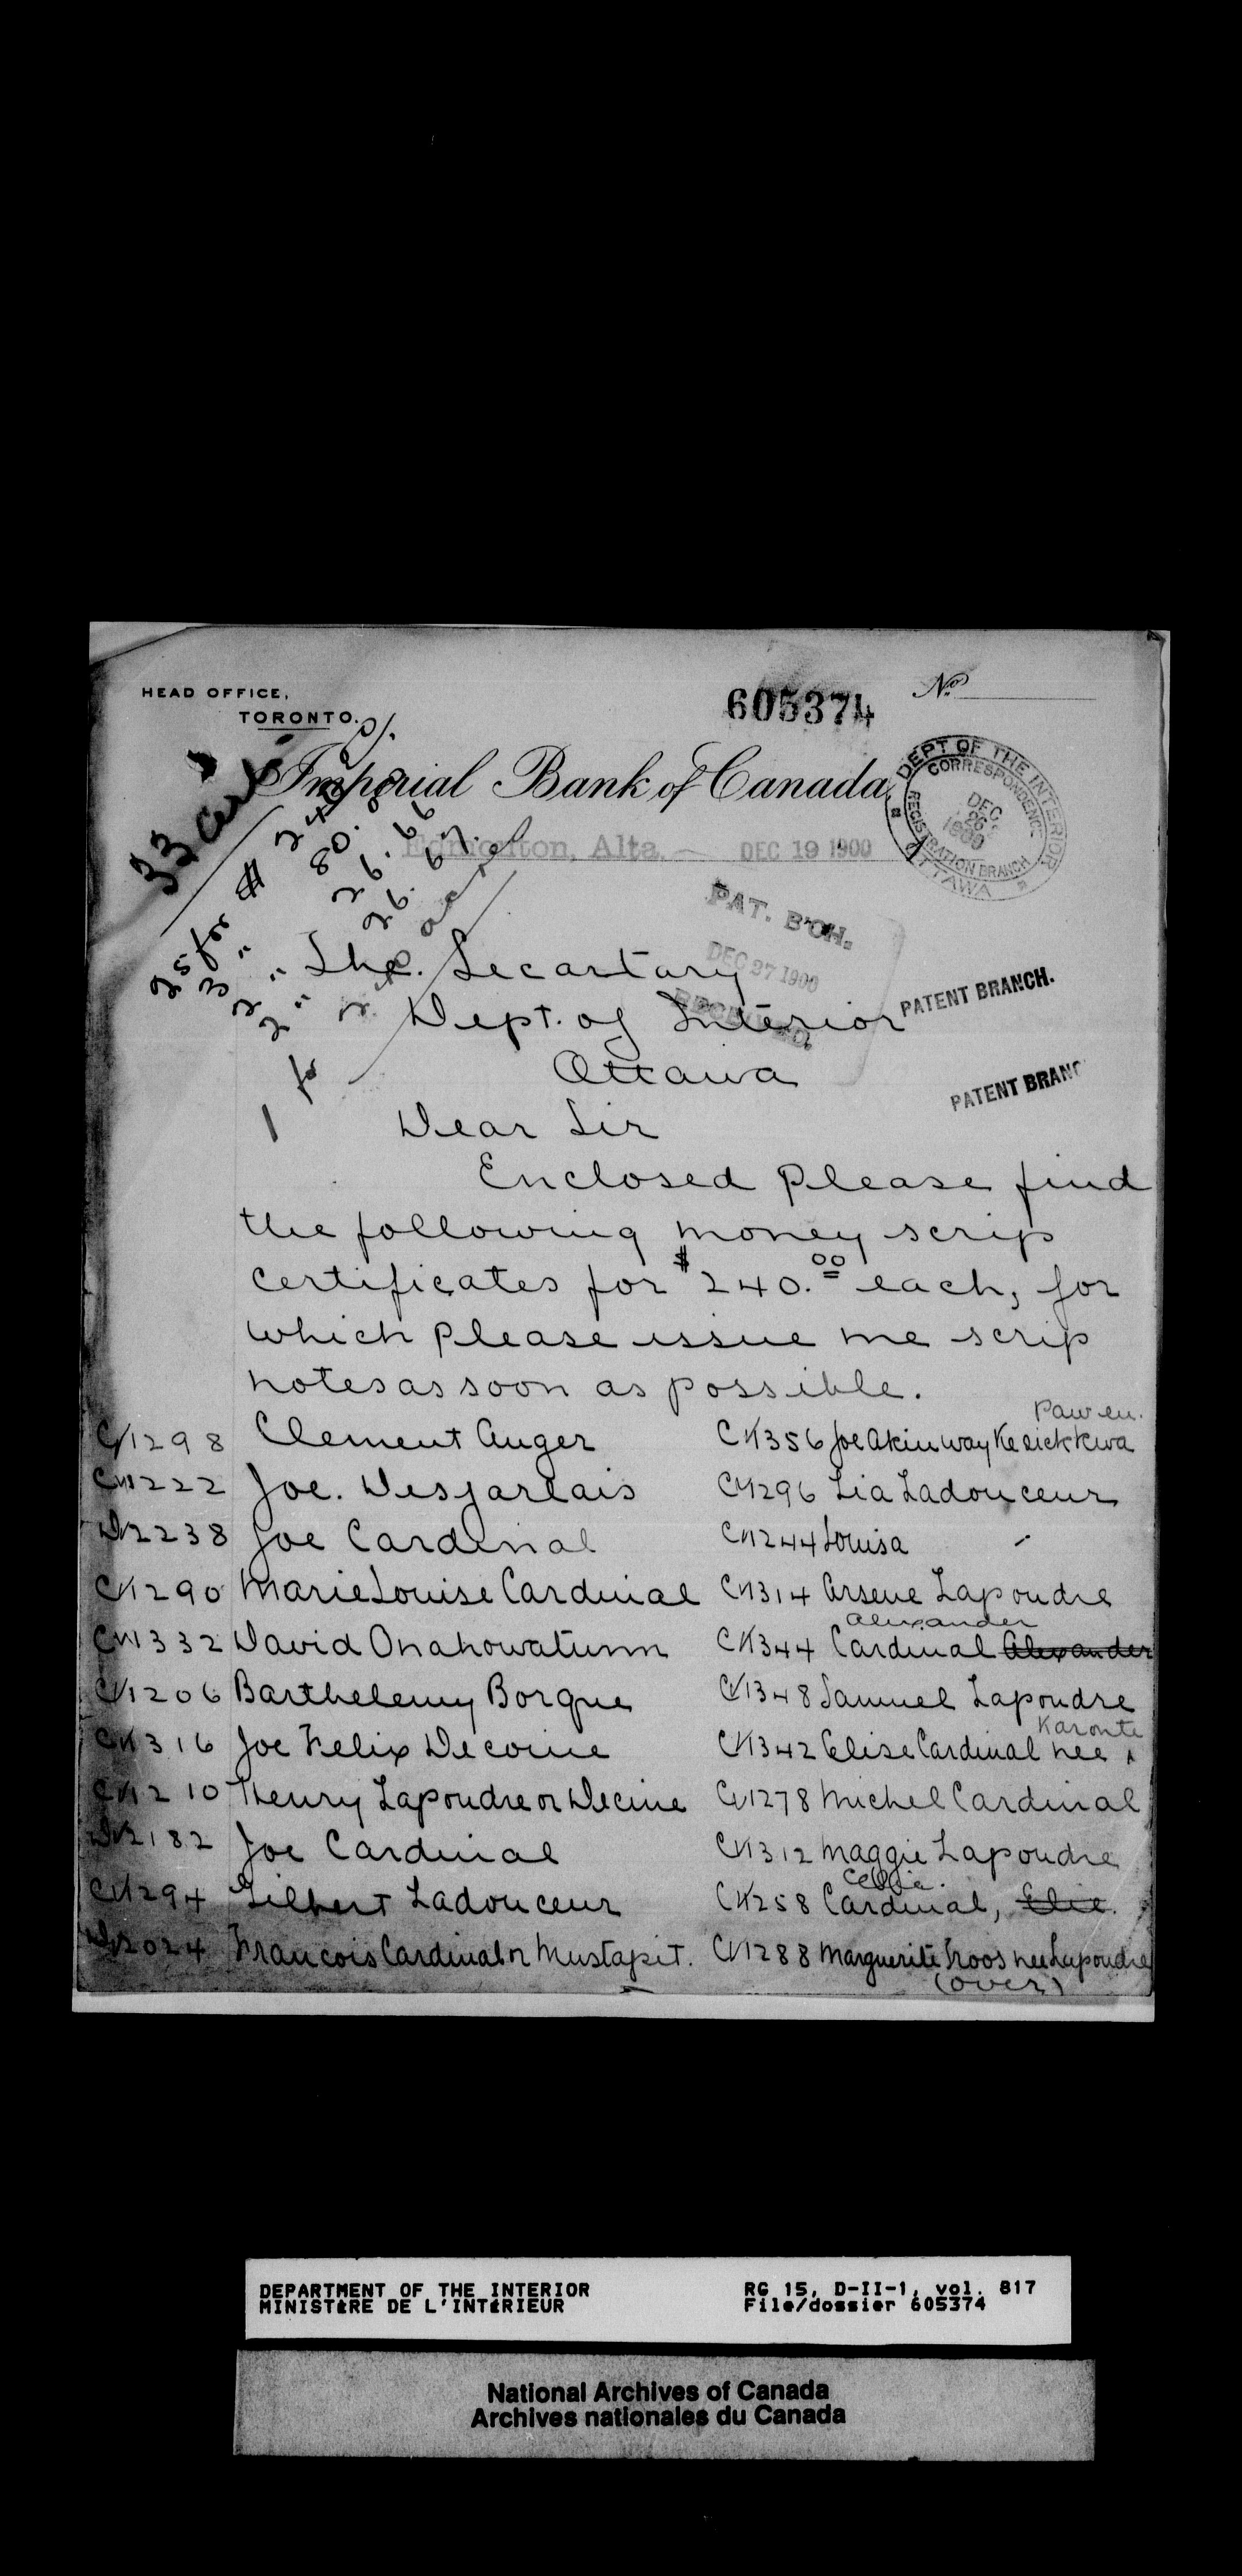 HEAD OFFICE,
TORONTO.
605374
No
Imperial Bank of Canada
Edmonton, Alta. DEC 19 1900
DEPT OF THE INTERIOR
CORRESPONDENCE
DEC 26 1900
REGISTRATION BRANCH
OTTAWA
33
25 for $ 240.
3 " 80.
2 " 26.66
2 " 26.67.
1 for
PAT. B'CH.
DEC 27 1900
RECEIVED.
PATENT BRANCH.
PATENT BRANC
The. Secartary
Dept. of Interior
Ottawa
Dear Sir
Enclosed please find
the following money scrip
certificates for $240.00 each, for
which please issue me scrip
notes as soon as possible.
1298 Clement Auger
1222 Joe. Desjarlais
2238 Joe Cardinal
1290 Marie Louise Cardinal
1332 David Onahowatumn
1206 Barthelemy Borque
1316 Joe Felix Decoine
1210 Henry Lapoudre or Decine
2182 Joe Cardinal
1294 Gilbert Ladouceur
2024 Francois Cardinal or Mustapit.
1356 Joe
1296 Lia Ladouceur
1244 Louisa -
1314 Arsene Lapoudre
Alexander
1344 Cardinal Alexander
1348 Samuel Lapoudre
Karonte
1342 Elise Cardinal nee
1278 Michel Cardinal
1312 Maggie Lapoudre
1258 Cardinal, Elie.
1288 Marguerite Troos nee Lapoudre
(over)
DEPARTMENT OF THE INTERIOR
MINISTÈRE DE L'INTÉRIEUR
RG 15, D-II-1, vol. 817
File/dossier 605374
National Archives of Canada
Archives nationales du Canada